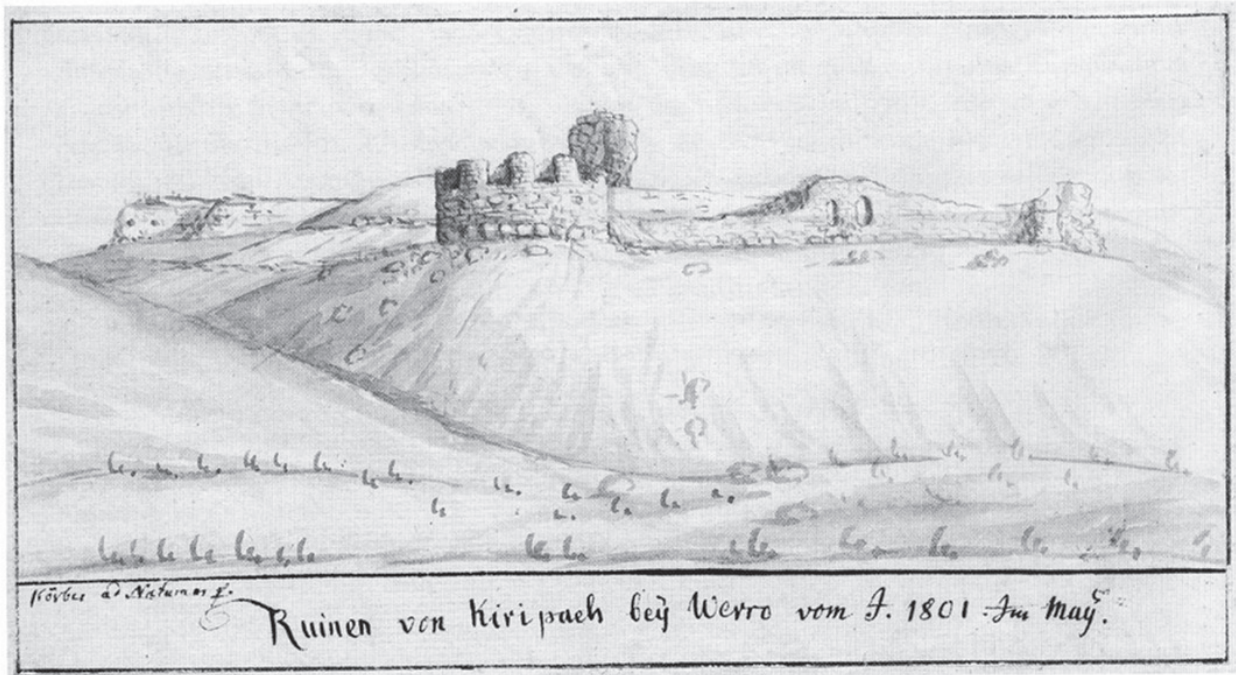 Körber ad Naturam f.
Ruinen von Kiripaeh beÿ Werro vom J. 1801 Im Maÿ.